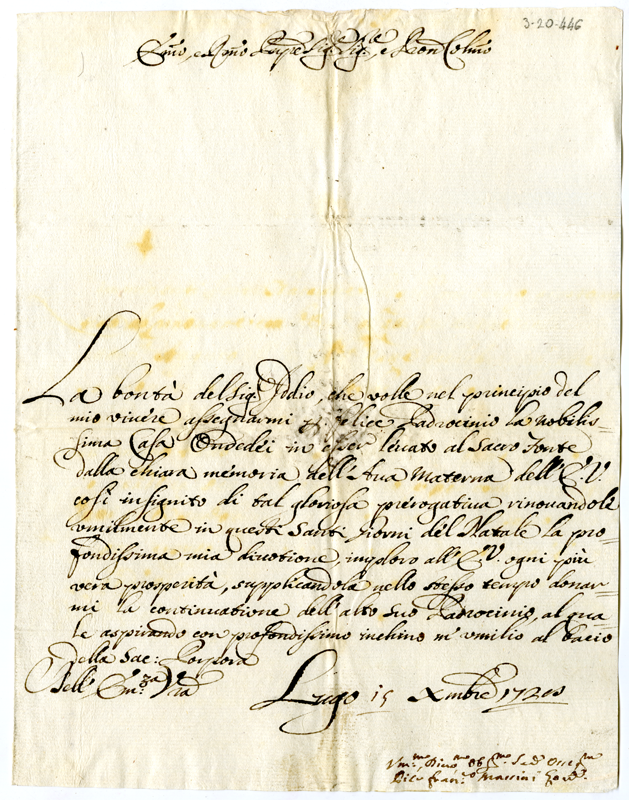 3-20-446
Em̃o, e Rm̃o Prĩpe Sig.re Sig.re, e Pron Colmo
La bontà del Sig.r Iddio, che volle nel principio del
mio vivere assegnarmi in felice Padrocinio la nobilis=
sima Casa Ondedei in esser levato al Sacro Fonte
dalla chiara memoria dell'Aua Materna dell'E.V.
così insignito di tal gloriosa prerogativa rinouandole
vmilmente in questi Santi Giorni del Natale la pro=
fondissima mia diuotione, imploro all'E.V. ogni più
vera prosperità, supplicandola nello stesso tempo donar=
mi la continuatione dell'alto Suo Padrocinio, al qua=
le aspirando con profondissimo inchino m'vmilio al bacio
della Sac: Porpora
Dell'Em:za Vra
Lugo 15 Xmbre 1720
Vm.mo Diuo.mo Ob.mo
Fran.co Massini